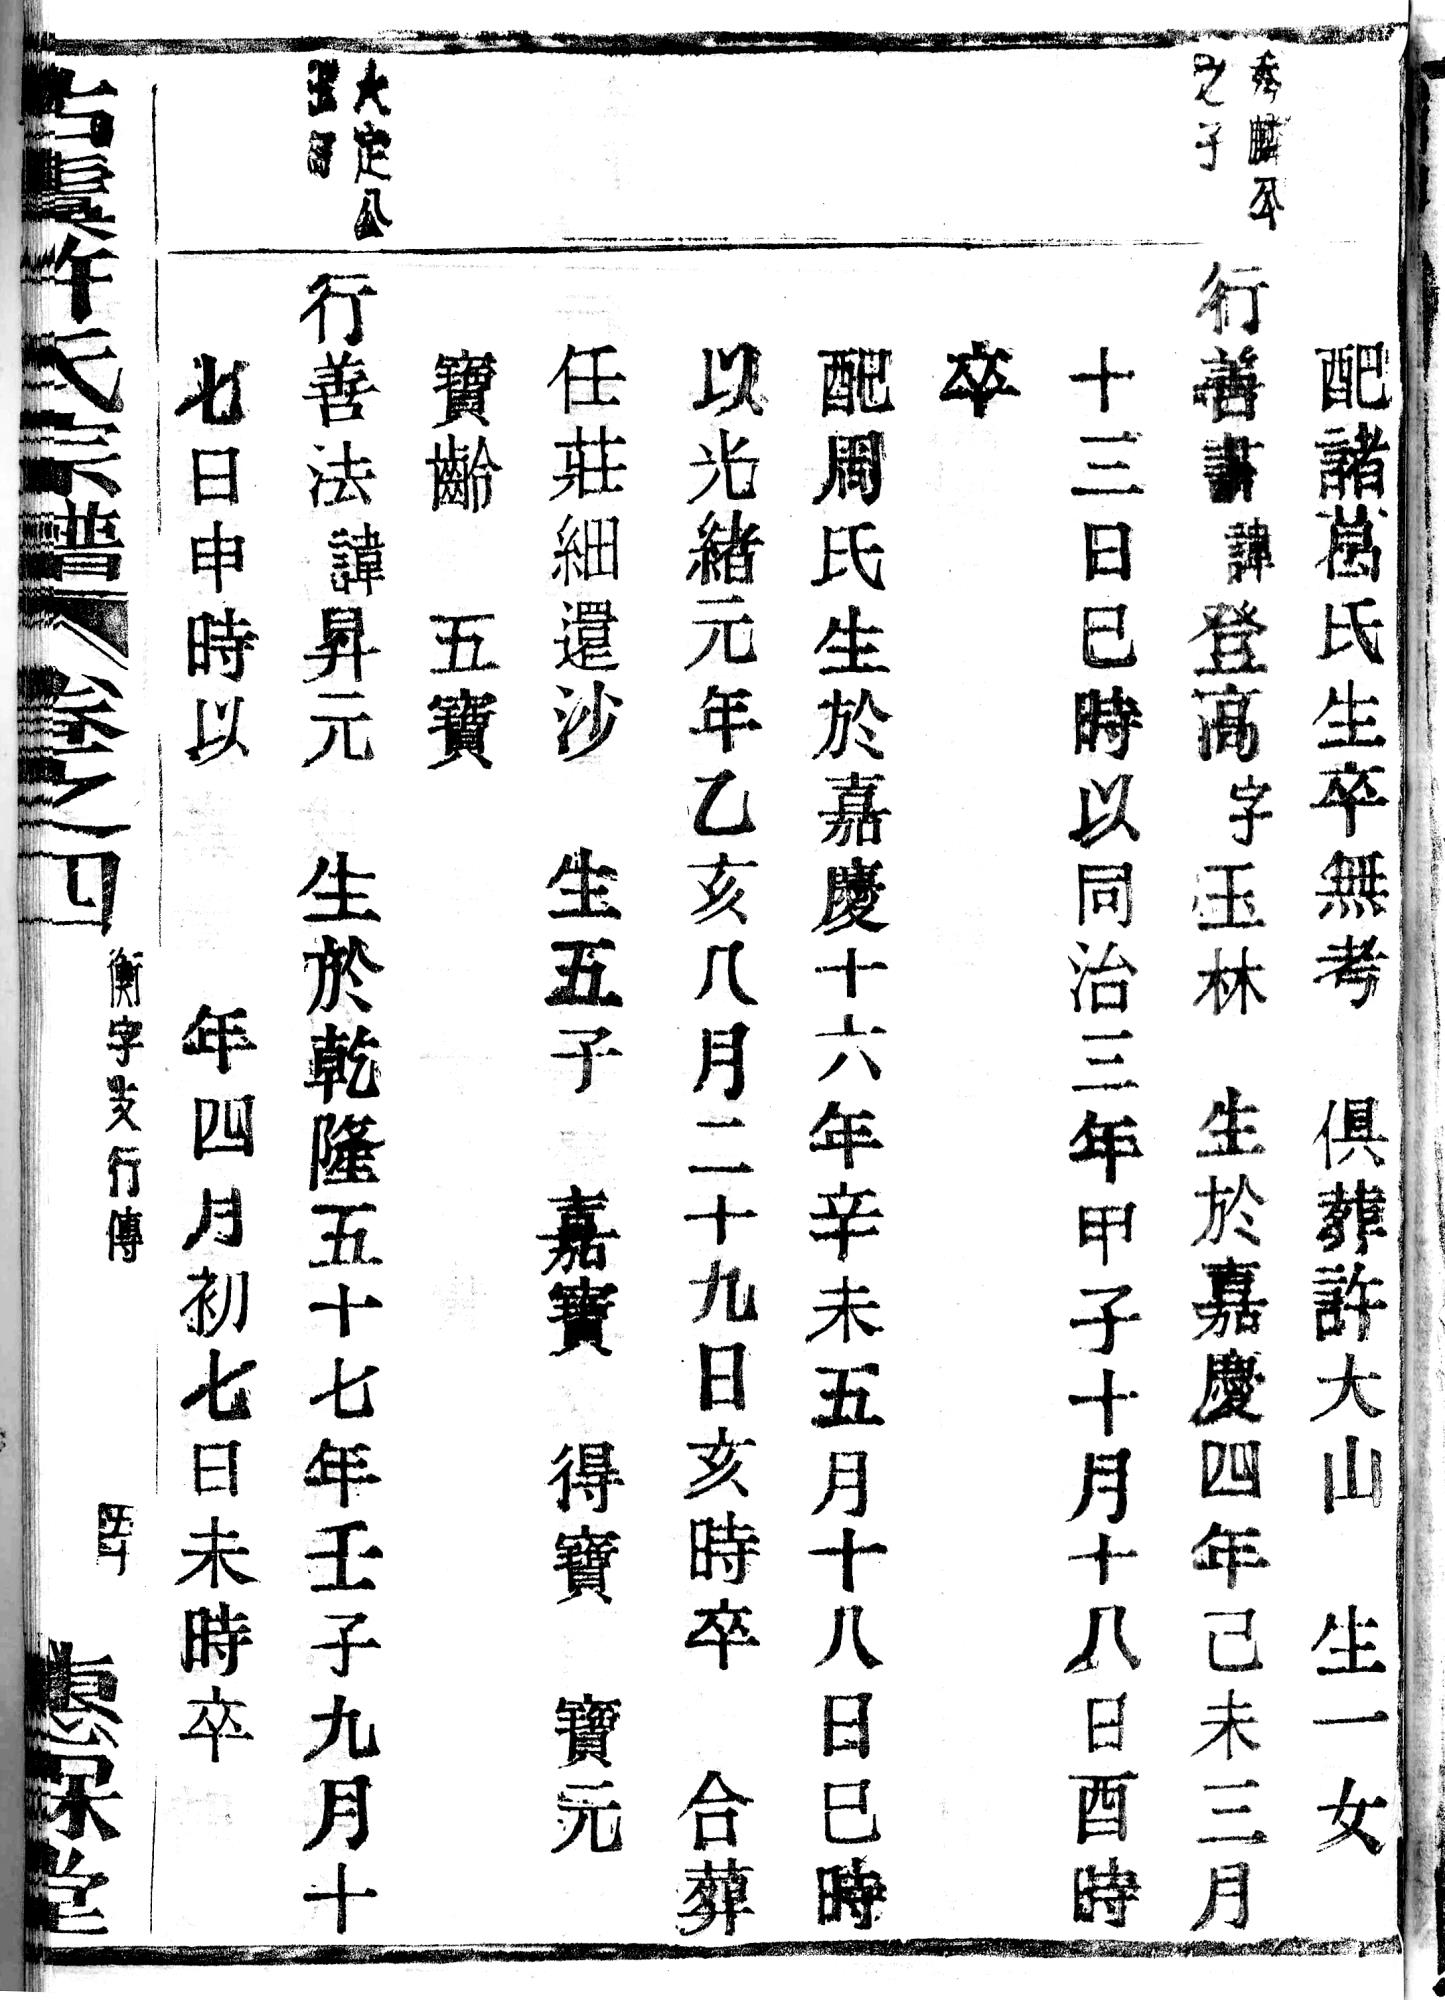 配諸葛氏生卒無考　俱葬許大山　生一女
秀麟公
之子
行善書諱登高字玉林　生於嘉慶四年己未三月
十三日巳時以同治三年甲子十月十八日酉時
卒
配周氏生於嘉慶十六年辛未五月十八日巳時
以光緒元年乙亥八月二十九日亥時卒　合葬
任莊細還沙　生五子　嘉寶　得寶　寶元
寶齡　五寶
大定公
行善法諱昇元　生於乾隆五十七年壬子九月十
七日申時以　年四月初七日未時卒
古虞許氏宗譜　卷之四　衡字支行傳　堂